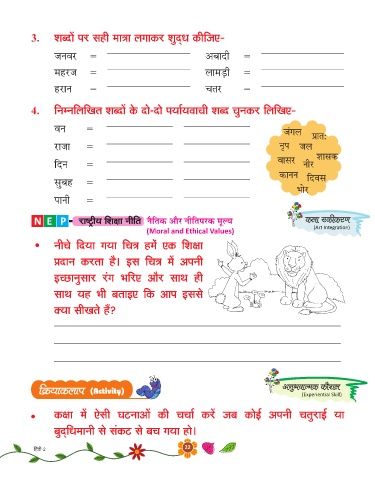 3. शब्दों पर सही मात्रा लगाकर शुद्ध कीजिए-
जनवर = अबादी =
महरज = लामड़ी =
हरान = चतर =
4. निम्नलिखित शब्दों के दो-दो पर्यायवाची शब्द चुनकर लिखिए-
वन =
राजा =
दिन =
सुबह =
पानी =
जंगल प्रातः
नृप जल
वासर नीर शासक
कानन दिवस
भोर
NEP राष्ट्रीय शिक्षा नीति नैतिक और नीतिपरक मूल्य
(Moral and Ethical Values)
कला एकीकरण
(Art Integration)
• नीचे दिया गया चित्र हमें एक शिक्षा
प्रदान करता है। इस चित्र में अपनी
इच्छानुसार रंग भरिए और साथ ही
साथ यह भी बताइए कि आप इससे
क्या सीखते हैं?
क्रियाकलाप (Activity)
अनुभवात्मक कौशल
(Experiential Skill)
• कक्षा में ऐसी घटनाओं की चर्चा करें जब कोई अपनी चतुराई या
बुद्धिमानी से संकट से बच गया हो।
हिंदी-2
22